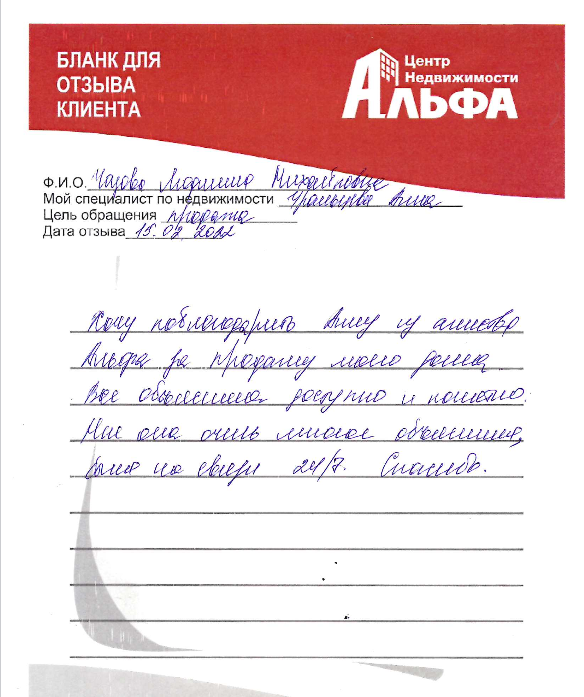 БЛАНК ДЛЯ
ОТЗЫВА
КЛИЕНТА
Центр
Недвижимости
АЛЬФА
Ф.И.О. Людмила Михайловна
Мой специалист по недвижимости Анна
Цель обращения продажа
Дата отзыва 15.02 2022
Хочу поблагодарить Анну из
Альфа за продажу моего дома
Все объяснила доступно и понятно.
Мне она очень многое объяснила,
была на связи 24/7. Спасибо.